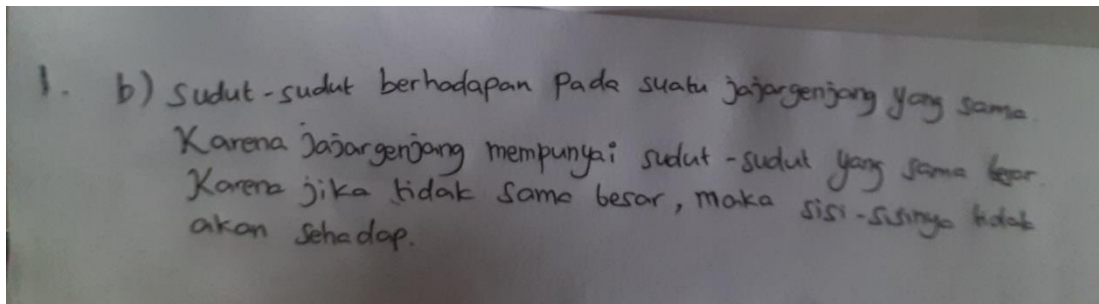 1. b) Sudut-sudut berhadapan pada suatu jajargenjang yang sama.
Karena jajargenjang mempunyai sudut-sudut yang sama besar.
Karena jika tidak sama besar, maka sisi-sisinya tidak
akan sehadap.